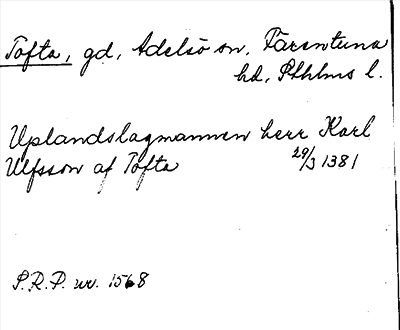 Tofta, gd, Adelsö sn, Färentuna
hd, Sthlms l.
Uplandslagmannen herr Karl
Ulfsson af Tofta 29/3 1381
S.R.P. nr. 1568